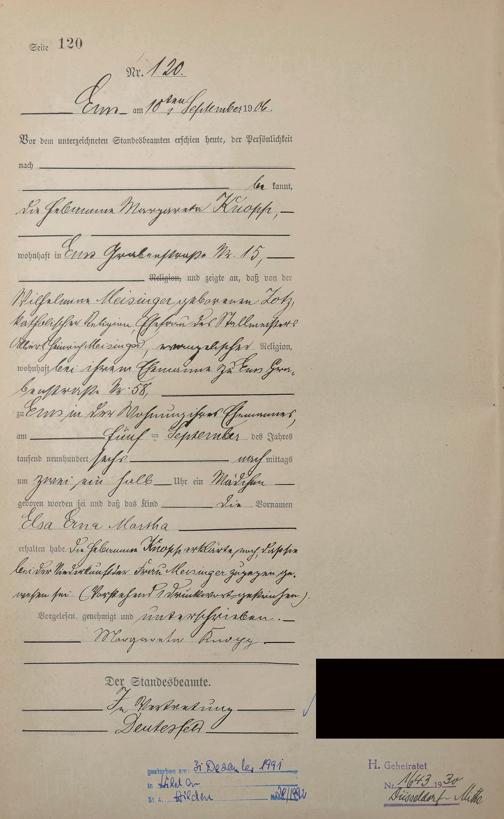 Seite 120
Nr. 120.
Ems am 10ten September 1906.
Vor dem unterzeichneten Standesbeamten erschien heute, der Persönlichkeit
nach
be kannt,
die Hebamme Margareta Knopp,
wohnhaft in Ems Grabenstraße Nr. 15,
Religion, und zeigte an, daß von der
Wilhelmine Meisinger geborenen Lotz,
katholischer Religion, Ehefrau des Stallmeisters
Heinrich Meisinger, evangelischer Religion,
wohnhaft bei ihrem Ehemanne zu Ems Gra-
benstraße Nr. 58,
zu Ems in der Wohnung ihres Ehemannes,
am fünften September des Jahres
tausend neunhundert sechs nach mittags
um zwei ein halb Uhr ein Mädchen
geboren worden sei und daß das Kind die Vornamen
Elsa Erna Martha
erhalten habe. Die Hebamme Knopp erklärte noch, daß sie
bei der Niederkunft der Frau Meisinger zugegen ge-
wesen sei. (Vorstehend 1 Druckwort gestrichen).
Vorgelesen, genehmigt und unterschrieben.
Margareta Knopp
Der Standesbeamte.
In Vertretung
gestorben am: 31 Dezember 1991
in Hilden
St. A. Hilden
H. Geheiratet
Nr. 1643 1930
Düsseldorf-Mitte